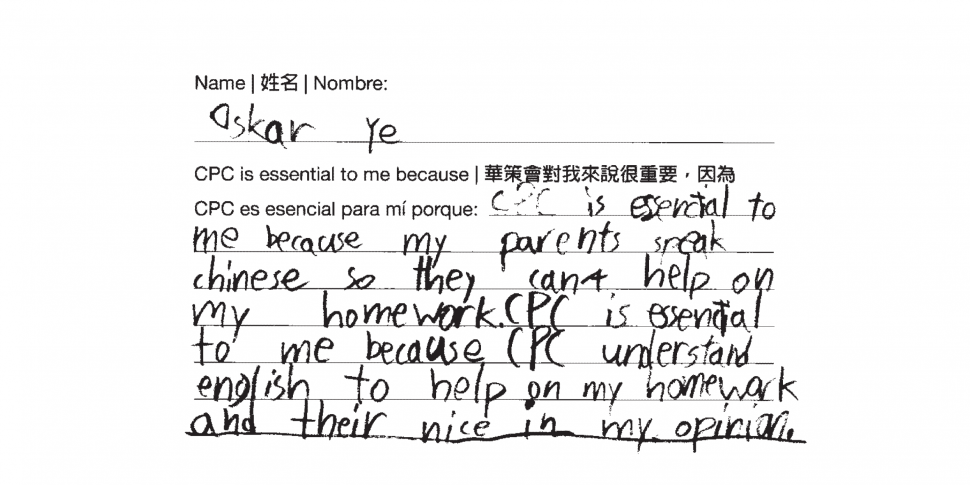 Name | 姓名 | Nombre:
Oskar Ye
CPC is essential to me because | 華策會對我來說很重要，因為
CPC es esencial para mí porque: CPC is essential to
me because my parents speak
chinese so they cant help on
my homework. CPC is essential
to me because CPC understand
english to help on my homework
and their nice in my opinion.